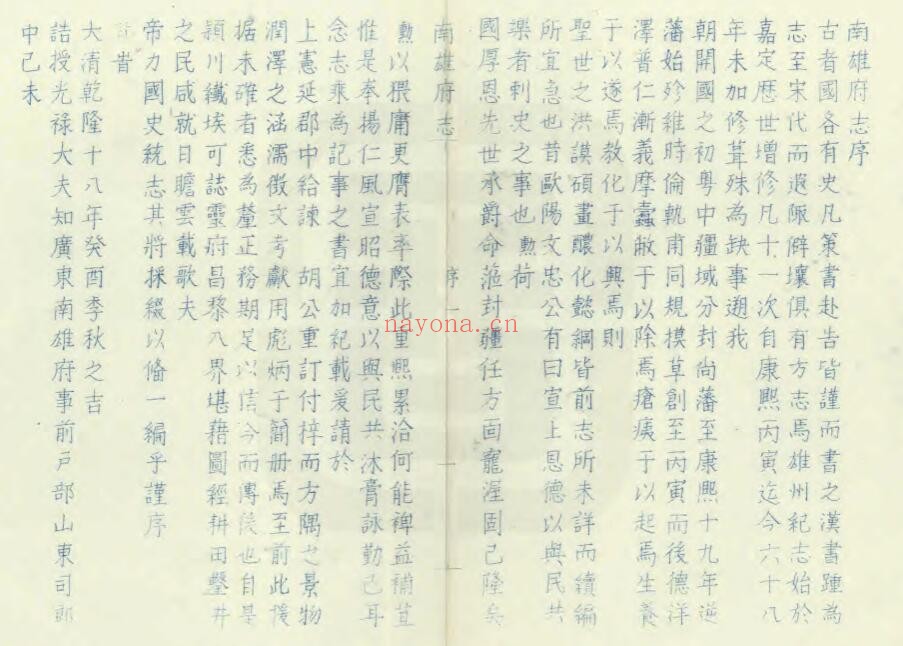 南雄府志序
古者國各有史凡策書赴告皆謹而書之漢書踵為
志至宋代而遐陬僻壤俱有方志焉雄州紀志始於
嘉定歷世增修凡十一次自康熙丙寅迄今六十八
年未加修葺殊為缺事遡我
朝開國之初粵中疆域分封尚藩至康熙十九年逆
藩始殄維時倫軌甫同規模草創至丙寅而後德洋
澤普仁漸義摩蠹敝于以除焉瘡痍于以起焉生養
于以遂焉教化于以興焉則
聖世之洪謨碩畫醲化懿綱皆前志所未詳而續編
所宜急也昔歐陽文忠公有曰宣上恩德以與民共
樂者刺史之事也勲荷
國厚恩先世承爵命蒞封疆任方面寵渥固已隆矣
南雄府志
序
一
勲以猥庸更膺表率際此重熙累洽何能裨益補苴
惟是奉揚仁風宣昭德意以與民共沐膏詠勤已耳
念志乘為記事之書宜加紀載爰請於
上憲延郡中給諫 胡公重訂付梓而方隅之景物
潤澤之涵濡徵文考獻用彪炳于簡册焉至前此援
据未確者悉為釐正務期足以信今而傳後也自是
潁川纖埃可誌靈府昌黎入界堪藉圖經耕田鑿井
之民咸就日瞻雲載歌夫
帝力國史統志其將採綴以備一編乎謹序
時
大清乾隆十八年癸酉季秋之吉
誥授光祿大夫知廣東南雄府事前戶部山東司郎
中己未
nayona.cn